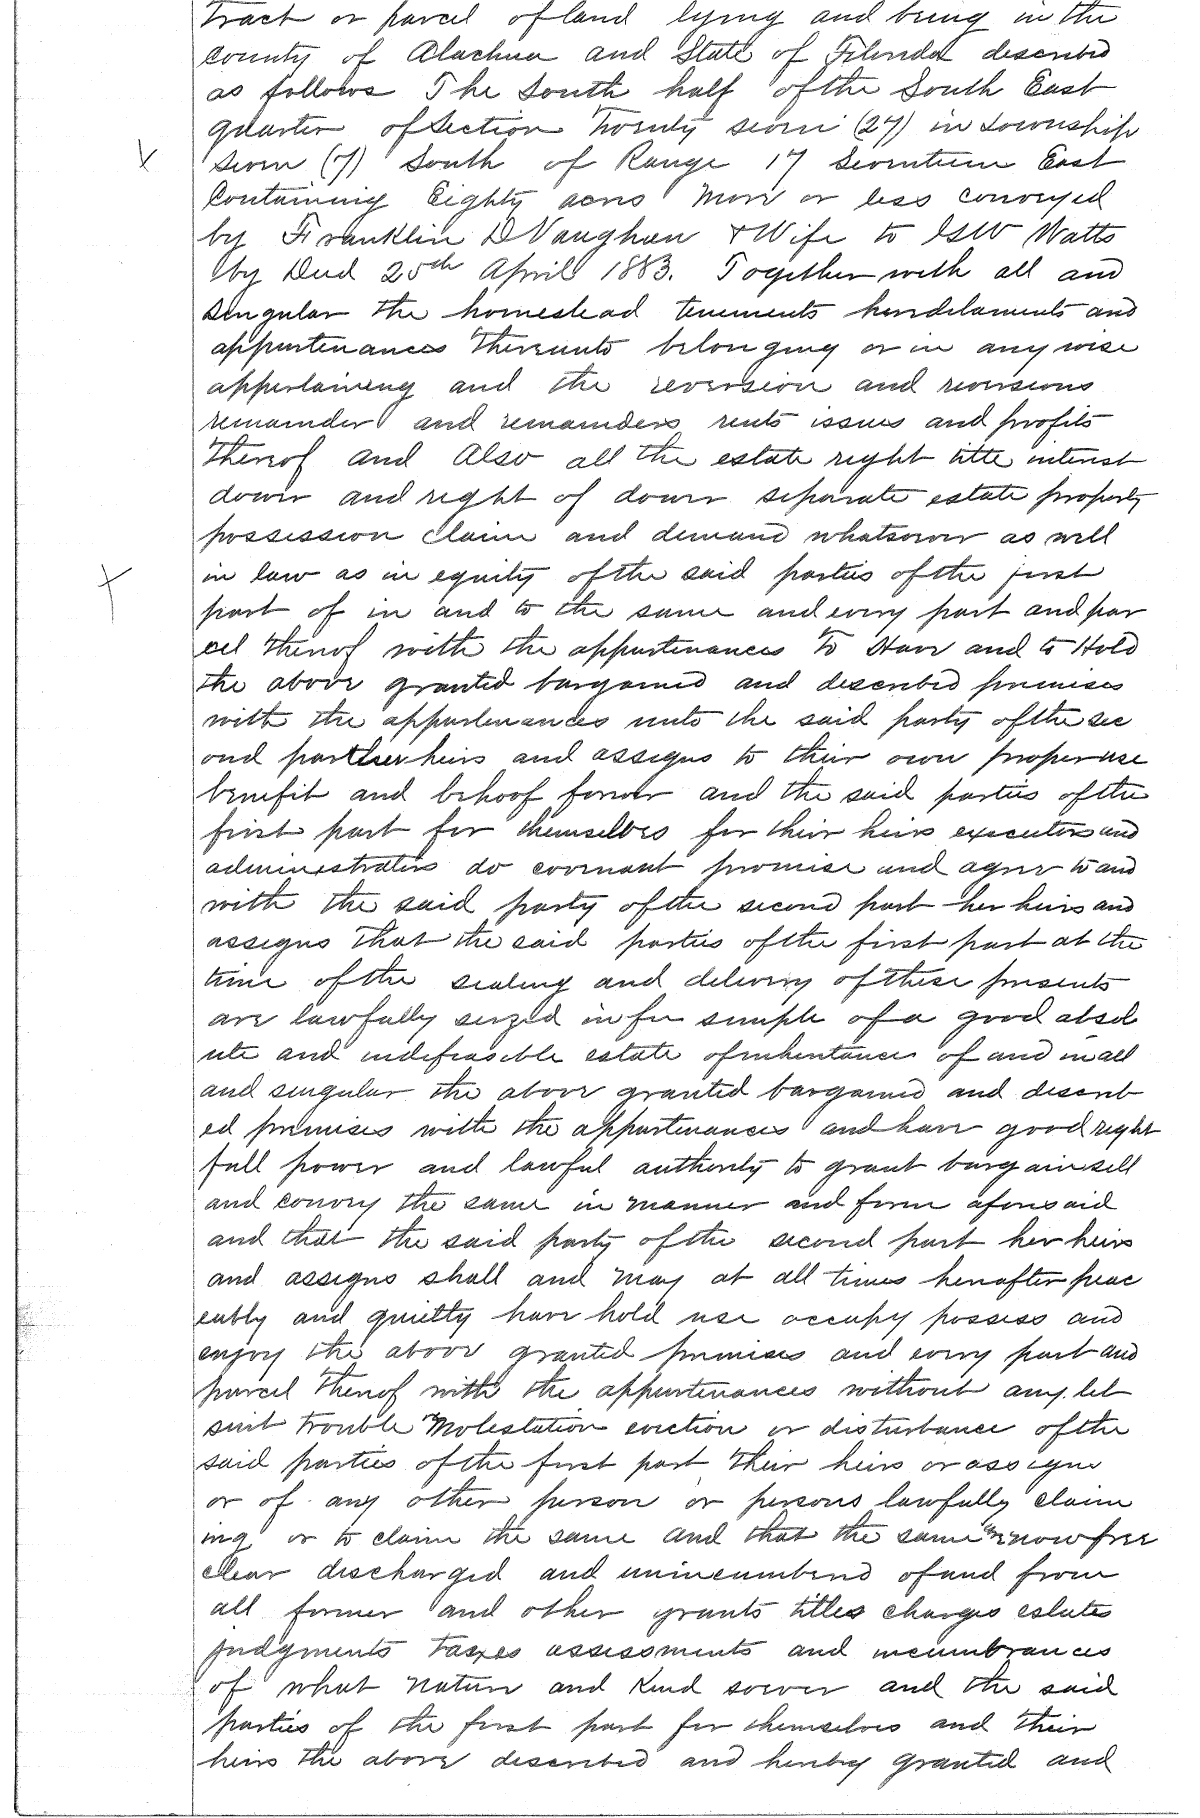 tract or parcel of land lying and being in the
County of Alachua and State of Florida described
as follows The South half of the South East
quarter of Section Twenty seven (27) in Township
Seven (7) South of Range 17 Seventeen East
Containing Eighty acres more or less conveyed
by Franklin D Vaughan & Wife to Watts
by Deed 25th April 1883. Together with all and
Singular the homestead tenements heredetaments and
appurtenances thereunto belonging or in any wise
appertaining and the reversion and reversions
remainder and remainders rents issues and profits
thereof and Also all the estate right title interest
dower and right of dower separate estate property
possession claim and demand whatsoever as well
in law as in equity of the said parties of the first
part of in and to the same and every part and par
cel thereof with the appurtenances To Have and to Hold
the above granted bargained and described premises
with the appurtenances unto the said party of the sec
ond part her heirs and assigns to their own proper use
benefit and behoof forever and the said parties of the
first part for themselves for their heirs executors and
administrators do covenant promise and agree to and
with the said party of the second part her heirs and
assigns that the said parties of the first part at the
time of the sealing and delivery of these presents
are lawfully seized in fee simple of a good absol
ute and indefeasible estate of inheritance of and in all
and singular the above granted bargained and describ
ed premises with the appurtenances and have good right
full power and lawful authority to grant bargain sell
and convey the same in manner and form aforesaid
and that the said party of the second part her heirs
and assigns shall and may at all times hereafter peac
eably and quietly have hold use occupy possess and
enjoy the above granted premises and every part and
parcel thereof with the appurtenances without any let
suit trouble molestation eviction or disturbance of the
said parties of the first part their heirs or assigns
or of any other person or persons lawfully claim
ing or to claim the same and that the same are now free
clear discharged and unincumbered of and from
all former and other grants titles charges estates
judgments taxes assessments and incumbrances
of what nature and kind soever and the said
parties of the first part for themselves and their
heirs the above described and hereby granted and